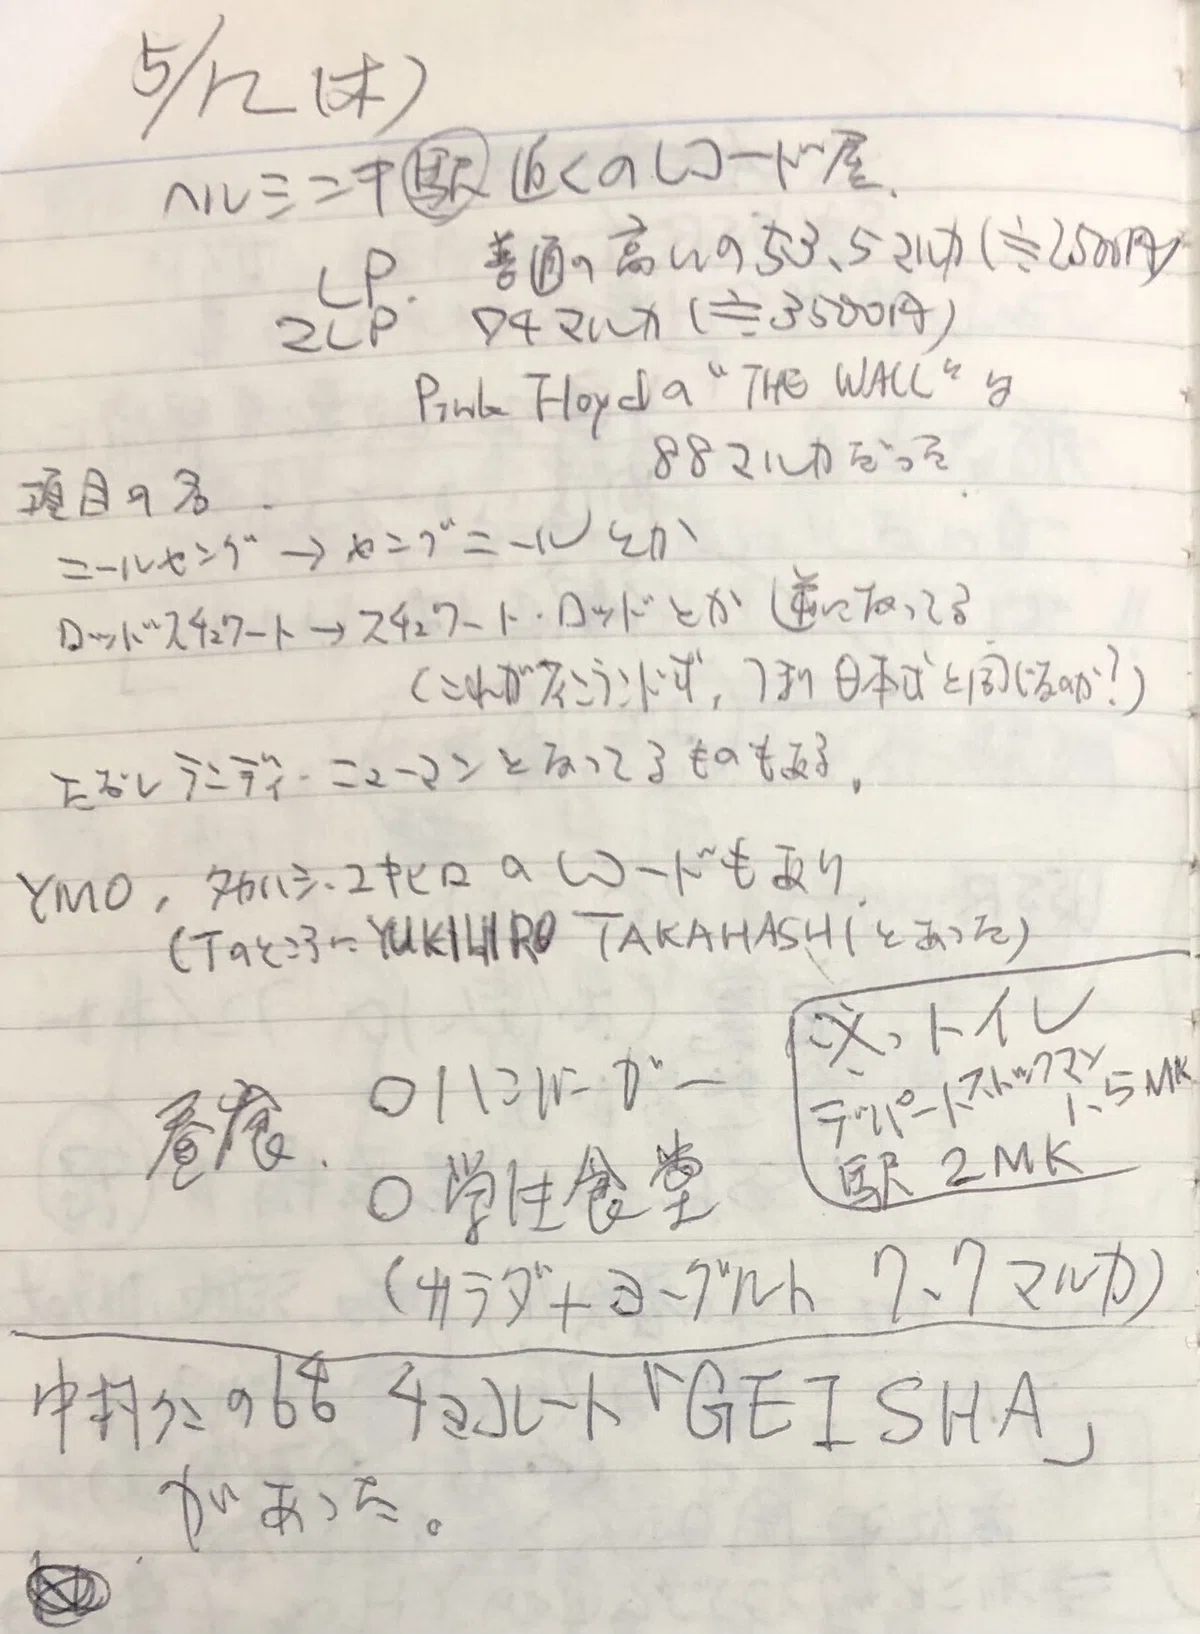 5/12 (木)
ヘルシンキ駅近くのレコード屋.
LP. 普通の高いの53.5マルカ(≒2500円)
2LP 74マルカ(≒3500円)
Pink Floydの“THE WALL”は
88マルカだった.
項目の名.
ニールヤング→ヤングニールとか
ロッドスチュワート→スチュワート・ロッドとか逆になってる
(これがフィンランド式, つまり日本式と同じなのか?)
ただしランディ・ニューマンとなってるものもある.
YMO, タカハシ・ユキヒロのレコードもあり.
(Tのところに YUKIHIRO TAKAHASHIとあった)
※. トイレ
デパートストックマン
1.5MK
駅 2MK
昼食. ○ハンバーガー
○学生食堂
(サラダ+ヨーグルト 7.7マルカ)
中村クンの チョコレート「GEISHA」
があった。